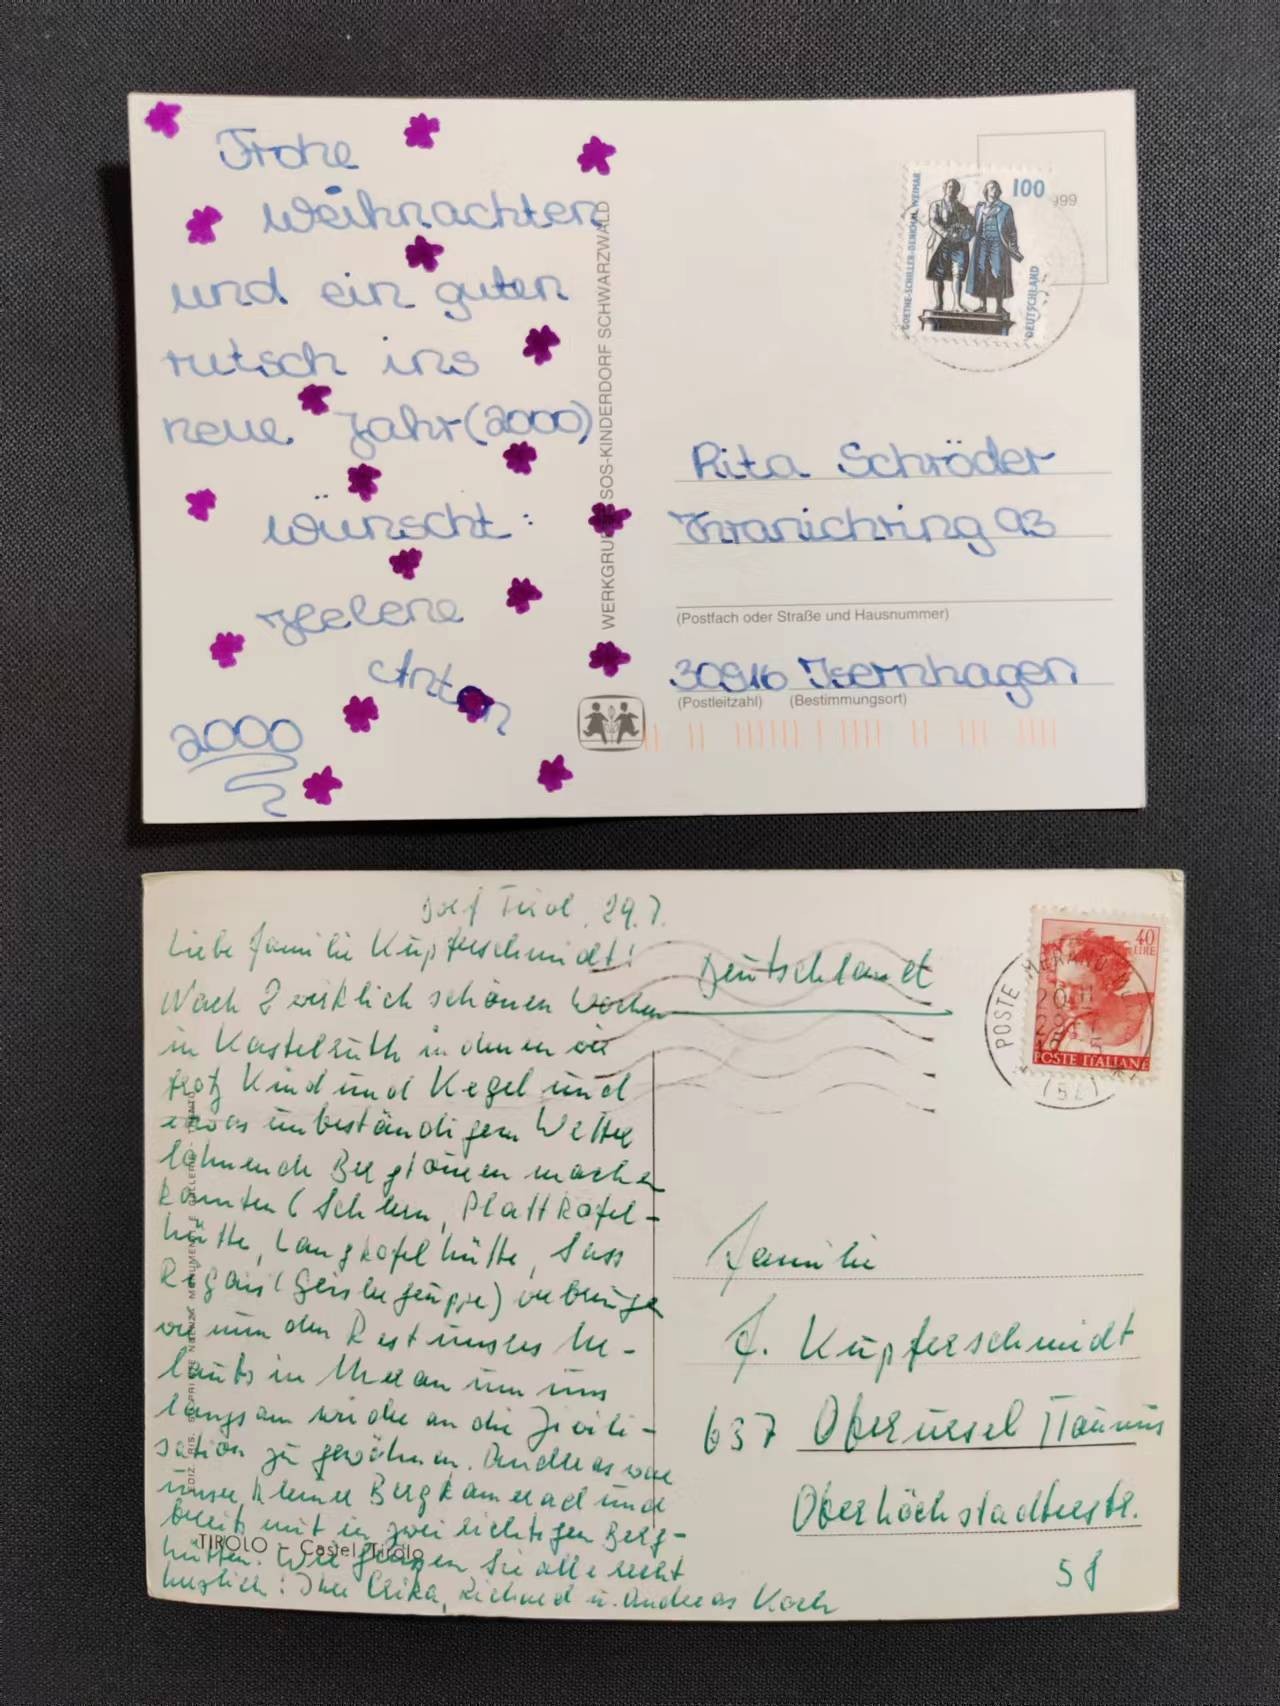 Frohe
Weihnachten
und ein guten
rutsch ins
neue Jahr (2000)
wünscht:
Heelene
Anton
2000
WERKGRU SOS-KINDERDORF SCHWARZWALD
GOETHE-SCHILLER-DENKMAL WEIMAR
100
DEUTSCHLAND
999
Rita Schröder
Kranichring 93
(Postfach oder Straße und Hausnummer)
30916 Isernhagen
(Postleitzahl) (Bestimmungsort)
Dorf Tirol, 29.7.
Liebe Familie Kupferschmidt!
Nach 2 wirklich schönen Wochen
in Kastelruth in denen wir
trotz Kind und Kegel und
etwas unbeständigem Wetter
lohnende Bergtouren machen
konnten (Schlern, Plattkofel-
hütte, Langkofelhütte, Sass
Rigais (Geislergruppe) verbringen
wir nun den Rest unseres Ur-
laubs in Meran um uns
langsam wieder an die Zivili-
sation zu gewöhnen. Andreas war
unser kleiner Bergkamerad und
bereits mit in zwei richtigen Berg-
hütten. Wir grüßen Sie alle recht
herzlich: Ihre Erika, Richard u. Andreas Koch
TIROLO - Castel Tirolo
Deutschland
40
LIRE
POSTE ITALIANE
POSTE MERANO
(52)
Familie
J. Kupferschmidt
637 Oberursel /Taunus
Oberhöchstadterstr.
58